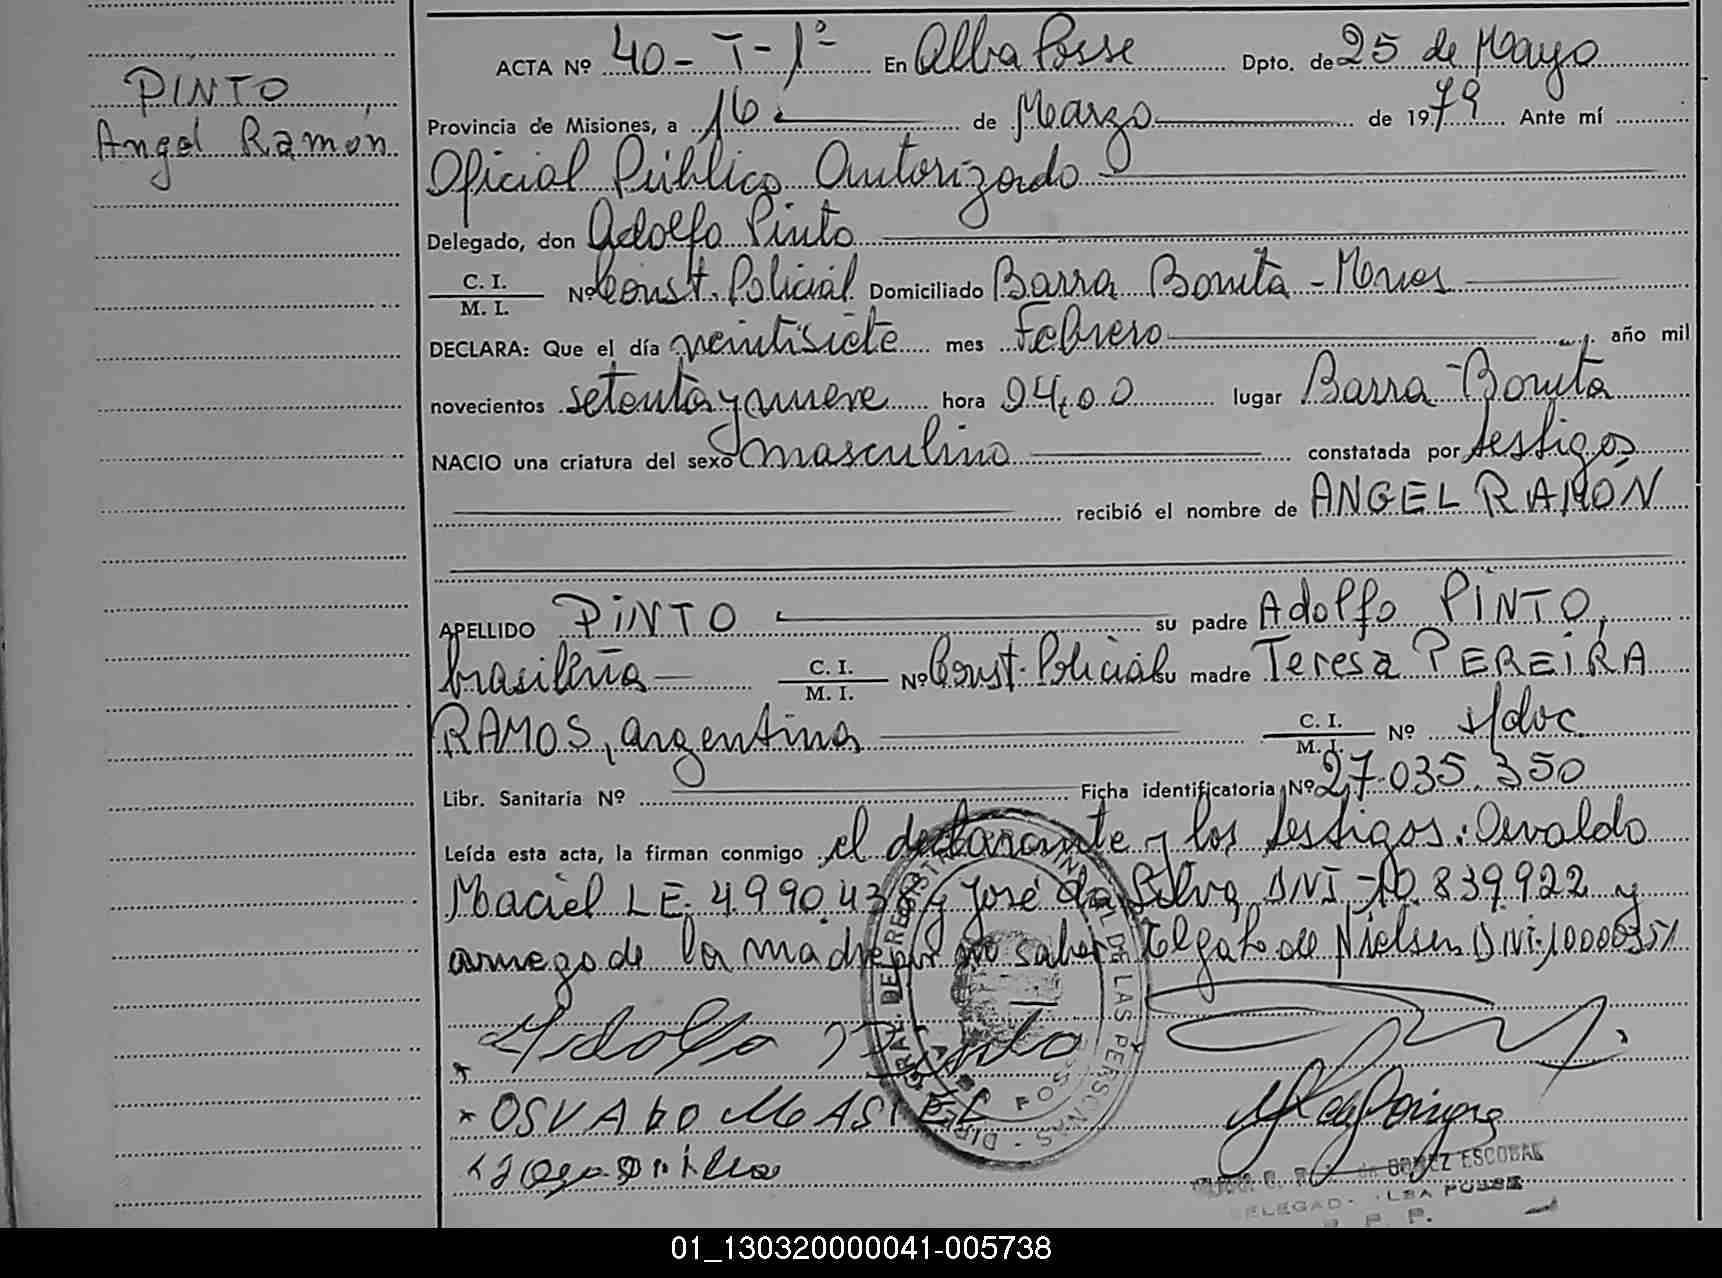 PINTO
Angel Ramón
ACTA Nº 40-T-1º En Alba Posse Dpto. de 25 de Mayo
Provincia de Misiones, a 16 de Marzo de 1979 Ante mí
Oficial Público Autorizado
Delegado, don Adolfo Pinto
C. I.
M. I.
Nº Const. Policial Domiciliado Barra Bonita - Mnes
DECLARA: Que el día veintisiete mes Febrero, año mil
novecientos setenta y nueve hora 04,00 lugar Barra Bonita
NACIO una criatura del sexo masculino constatada por testigos
recibió el nombre de ANGEL RAMÓN
APELLIDO PINTO su padre Adolfo PINTO,
brasileña C. I. M. I. Nº Const. Policial su madre Teresa PEREIRA
RAMOS, argentina C. I. M. I. Nº s/doc
Libr. Sanitaria Nº Ficha identificatoria Nº 27.035.350
Leída esta acta, la firman conmigo el declarante y los testigos: Osvaldo
Maciel LE. 4.990.438 y José da Silva DNI-10.839.922 y
a ruego de la madre por no saber de Nielsen DNI.
Adolfo Pinto
* OSVALDO MASIEL
DIR. GRAL. DE REGISTRO PROVINCIAL DE LAS PERSONAS
POSSE
de GOMEZ ESCOBAR
DELEGAD. ALBA POSSE
R. P. P.
01_130320000041-005738